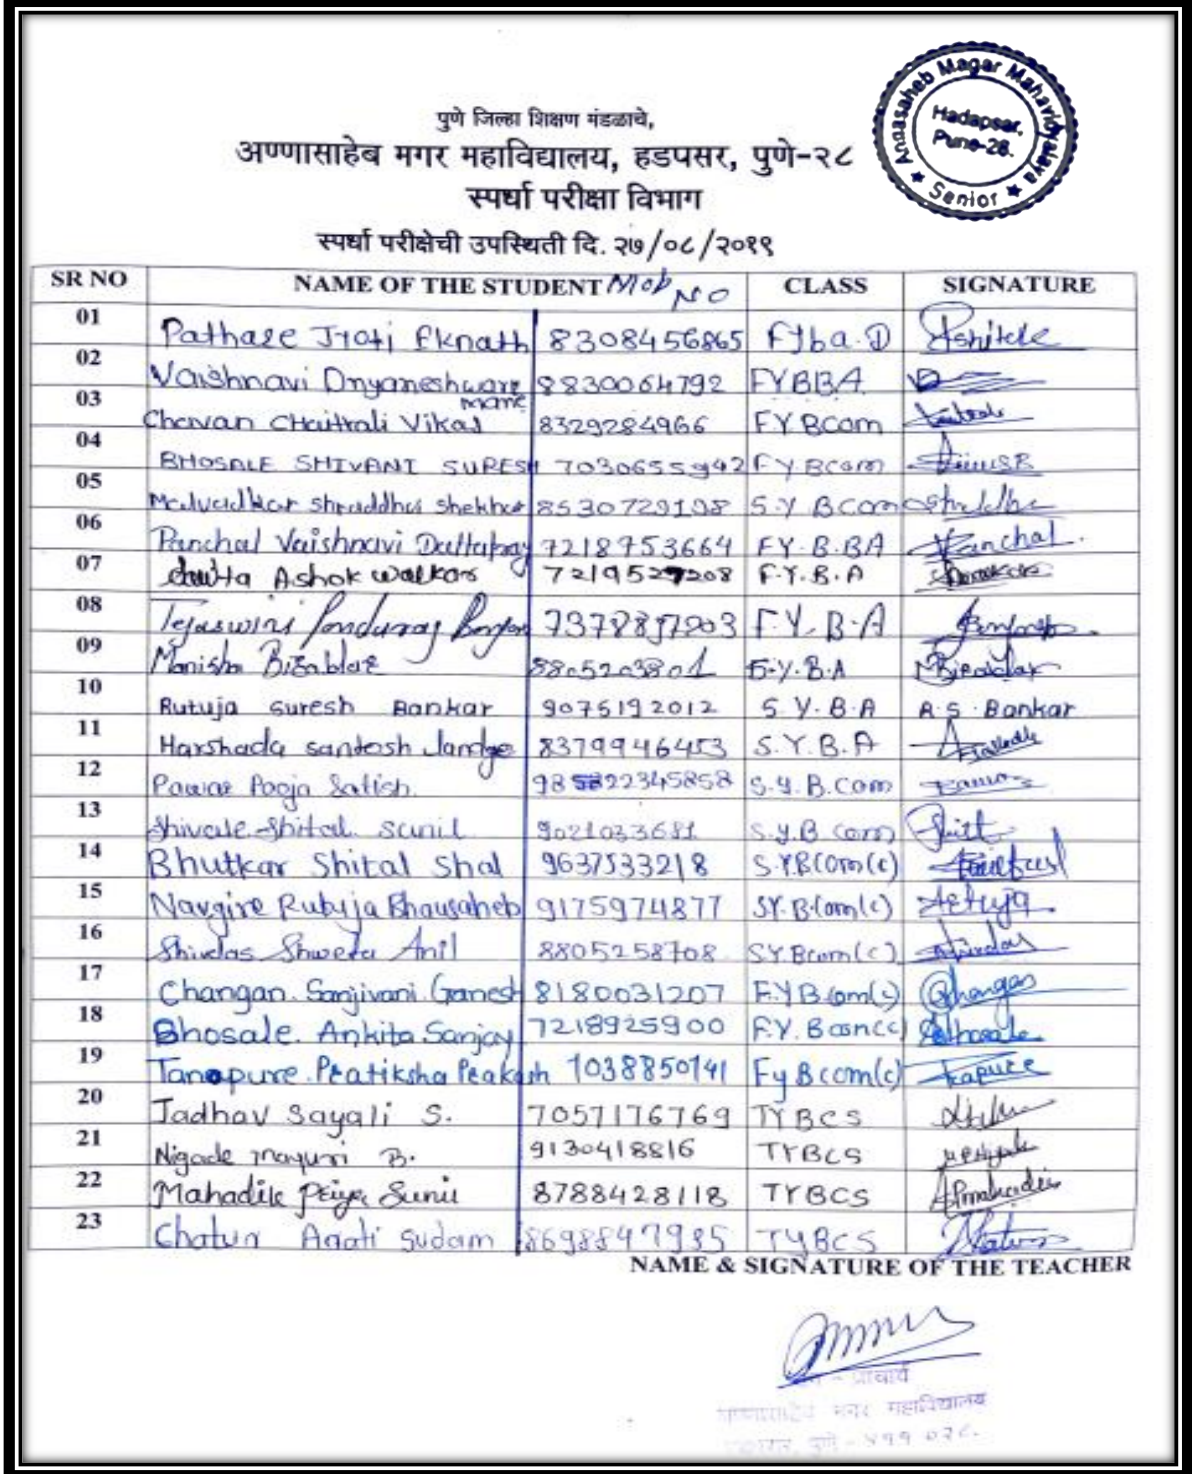 Annasaheb Magar Mahavidyalaya
Hadapsar,
Pune-28.
★ Senior ★
पुणे जिल्हा शिक्षण मंडळाचे,
अण्णासाहेब मगर महाविद्यालय, हडपसर, पुणे-२८
स्पर्धा परीक्षा विभाग
स्पर्धा परीक्षेची उपस्थिती दि. २७/०८/२०१९
SR NO NAME OF THE STUDENT Mob NO CLASS SIGNATURE
01 Pathare Jyoti Eknath 8308456865 FYba.D
02 Vaishnavi Dnyaneshware mane 8830064792 FYBBA
03 Chavan Chaitrali Vikas 8329284966 F.Y.BCom
04 BHOSALE SHIVANI SURESH 7030655942 F.Y.BCom
05 Malvadkar Shraddha Shekhar 8530729198 S.Y.BCom Shraddha
06 Panchal Vaishnavi Dattatray 7218753664 F.Y.B.BA Panchal.
07 Ashok walkar 7219527208 F.Y.B.A
08 Tejaswini Pandurang 7378857903 F.Y.B.A
09 Manisha Biradar 8805203801 F.Y.B.A Biradar
10 Rutuja Suresh Bankar 9075192012 S.Y.B.A R.S.Bankar
11 Harshada santosh Jandge 8379946453 S.Y.B.A
12 Pawar Pooja Satish 985822345858 S.Y.B.Com
13 Shivale Shital sunil 9021033681 S.Y.B com
14 Bhutkar Shital Shal 9637533218 S.Y.BCom(c)
15 Navgire Rutuja Bhausaheb 9175974877 SY.B.Com(c)
16 Shivdas Shweta Anil 8805258708 SY.Bcom(c) Shivdas
17 Changan. Sanjivani. Ganesh 8180031207 F.Y.B.com(c) Changan
18 Bhosale. Ankita. Sanjay 7218925900 F.Y. Bcom(c) Bhosale
19 Tanapure. Pratiksha Prakash 1038850141 FyBcom(c) Tanpure
20 Jadhav Sayali S. 7057176769 TYBCS
21 Nigade mayuri B. 9130418816 TYBCS
22 Mahadik Priya Sunil 8788428118 TYBCS
23 Chatur Arati Sudam 8698847985 TYBCS
NAME & SIGNATURE OF THE TEACHER
प्राचार्य
अण्णासाहेब मगर महाविद्यालय
हडपसर, पुणे - ४११ ०२८.